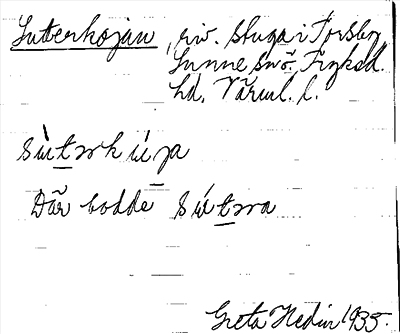 Sutterkojan, riv. stuga i Torsby
Sunne snö. Fryksd.
hd, Värml. l.
sùt̲ərkúja
Där bodde sút̲ərna
Greta Hedin 1935.